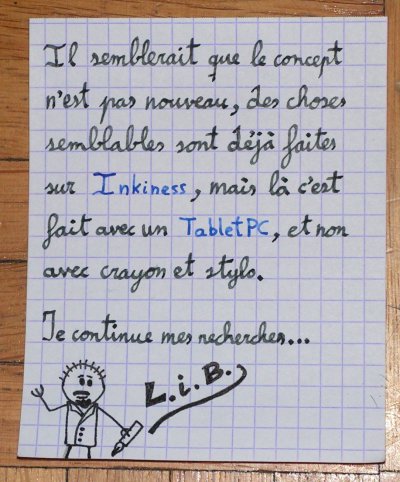 Il semblerait que le concept
n'est pas nouveau, des choses
semblables sont déjà faites
sur Inkiness, mais là c'est
fait avec un TabletPC, et non
avec crayon et stylo.
Je continue mes recherches...
L.i.B.